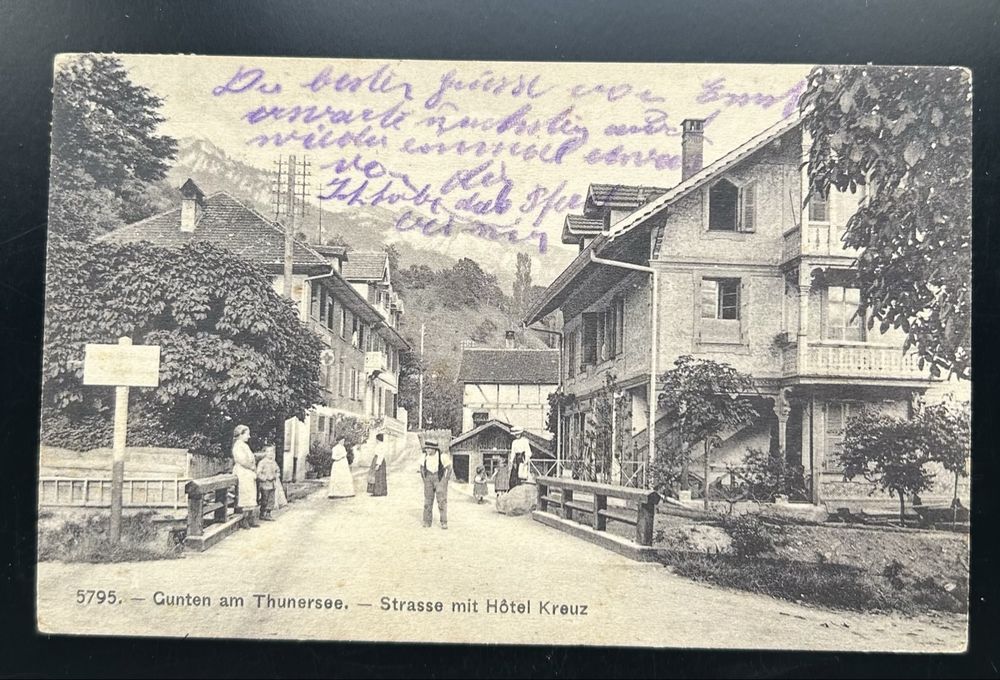 Die besten Grüsse von Ernst
erwarte nächstens auch
wieder einmal etwas
von dir
Ich habe das
5795. — Gunten am Thunersee. — Strasse mit Hôtel Kreuz